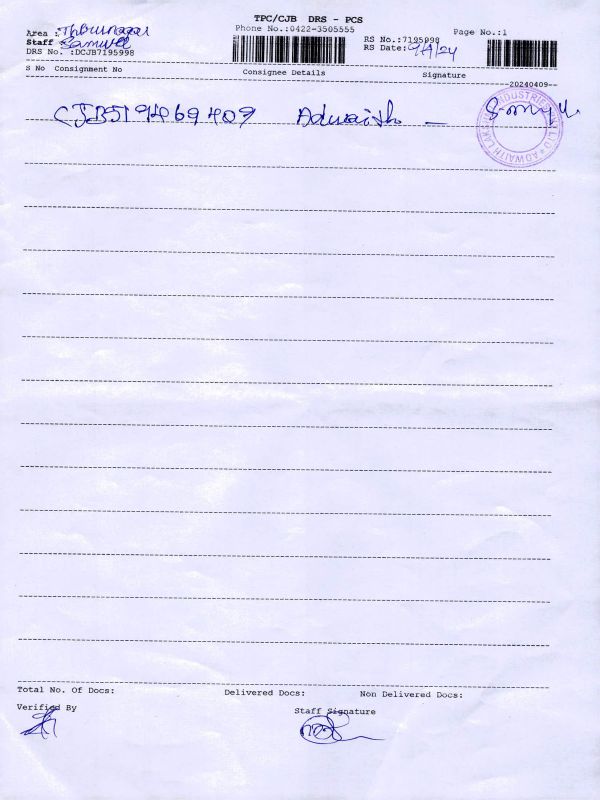 TPC/CJB DRS - PCS
Phone No.:0422-3505555
Page No.:1
Area :
Staff Samuel
DRS No. :DCJB7195998
RS No.:7195998
RS Date: 9/4/24
S No Consignment No Consignee Details Signature
20240409
CJB519469409 Adwaith
Total No. Of Docs: Delivered Docs: Non Delivered Docs:
Verified By Staff Signature